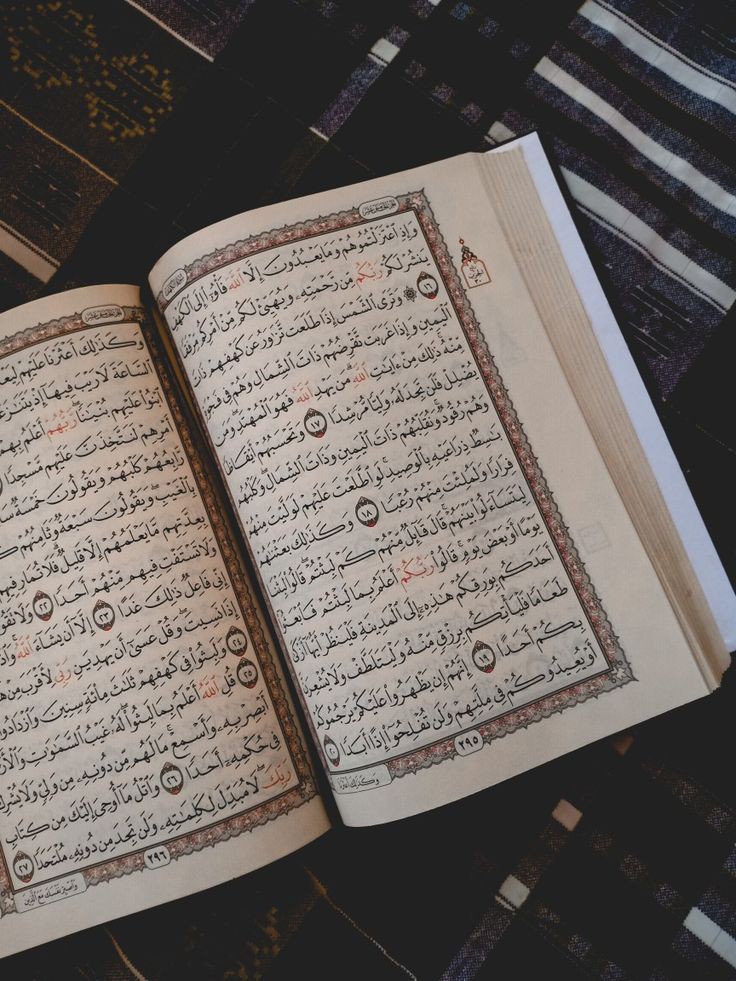 الجزء الخامس عشر
سورة الكهف
وَإِذِ ٱعْتَزَلْتُمُوهُمْ وَمَا يَعْبُدُونَ إِلَّا ٱللَّهَ فَأْوُۥٓا۟ إِلَى ٱلْكَهْفِ
يَنشُرْ لَكُمْ رَبُّكُم مِّن رَّحْمَتِهِۦ وَيُهَيِّئْ لَكُم مِّنْ أَمْرِكُم مِّرْفَقًا
١٦ ۞ وَتَرَى ٱلشَّمْسَ إِذَا طَلَعَت تَّزَٰوَرُ عَن كَهْفِهِمْ ذَاتَ
ٱلْيَمِينِ وَإِذَا غَرَبَت تَّقْرِضُهُمْ ذَاتَ ٱلشِّمَالِ وَهُمْ فِى فَجْوَةٍ
مِّنْهُ ۚ ذَٰلِكَ مِنْ ءَايَٰتِ ٱللَّهِ ۗ مَن يَهْدِ ٱللَّهُ فَهُوَ ٱلْمُهْتَدِ ۖ وَمَن
يُضْلِلْ فَلَن تَجِدَ لَهُۥ وَلِيًّا مُّرْشِدًا ١٧ وَتَحْسَبُهُمْ أَيْقَاظًا
وَهُمْ رُقُودٌ ۚ وَنُقَلِّبُهُمْ ذَاتَ ٱلْيَمِينِ وَذَاتَ ٱلشِّمَالِ ۖ وَكَلْبُهُم
بَٰسِطٌ ذِرَاعَيْهِ بِٱلْوَصِيدِ ۚ لَوِ ٱطَّلَعْتَ عَلَيْهِمْ لَوَلَّيْتَ مِنْهُمْ
فِرَارًا وَلَمُلِئْتَ مِنْهُمْ رُعْبًا ١٨ وَكَذَٰلِكَ بَعَثْنَٰهُمْ
لِيَتَسَآءَلُوا۟ بَيْنَهُمْ ۚ قَالَ قَآئِلٌ مِّنْهُمْ كَمْ لَبِثْتُمْ ۖ قَالُوا۟ لَبِثْنَا
يَوْمًا أَوْ بَعْضَ يَوْمٍ ۚ قَالُوا۟ رَبُّكُمْ أَعْلَمُ بِمَا لَبِثْتُمْ فَٱبْعَثُوٓا۟
أَحَدَكُم بِوَرِقِكُمْ هَٰذِهِۦٓ إِلَى ٱلْمَدِينَةِ فَلْيَنظُرْ أَيُّهَآ أَزْكَىٰ
طَعَامًا فَلْيَأْتِكُم بِرِزْقٍ مِّنْهُ وَلْيَتَلَطَّفْ وَلَا يُشْعِرَنَّ
بِكُمْ أَحَدًا ١٩ إِنَّهُمْ إِن يَظْهَرُوا۟ عَلَيْكُمْ يَرْجُمُوكُمْ
أَوْ يُعِيدُوكُمْ فِى مِلَّتِهِمْ وَلَن تُفْلِحُوٓا۟ إِذًا أَبَدًا ٢٠
٢٩٥
وَكَذَٰلِكَ أَعْثَرْنَا
وَكَذَٰلِكَ أَعْثَرْنَا عَلَيْهِمْ
ٱلسَّاعَةَ لَا رَيْبَ فِيهَآ إِذْ
ٱبْنُوا۟ عَلَيْهِم بُنْيَٰنًا ۖ رَّبُّهُمْ أَعْلَمُ بِهِمْ
أَمْرِهِمْ لَنَتَّخِذَنَّ عَلَيْهِم مَّسْجِدًا
رَّابِعُهُمْ كَلْبُهُمْ وَيَقُولُونَ خَمْسَةٌ
بِٱلْغَيْبِ ۖ وَيَقُولُونَ سَبْعَةٌ وَثَامِنُهُمْ
بِعِدَّتِهِم مَّا يَعْلَمُهُمْ إِلَّا قَلِيلٌ ۗ فَلَا تُمَارِ فِيهِمْ
وَلَا تَسْتَفْتِ فِيهِم مِّنْهُمْ أَحَدًا ٢٢ وَلَا
إِنِّى فَاعِلٌ ذَٰلِكَ غَدًا ٢٣ إِلَّآ أَن يَشَآءَ ٱللَّهُ ۚ
إِذَا نَسِيتَ وَقُلْ عَسَىٰٓ أَن يَهْدِيَنِ رَبِّى لِأَقْرَبَ مِنْ
٢٤ وَلَبِثُوا۟ فِى كَهْفِهِمْ ثَلَٰثَ مِا۟ئَةٍ سِنِينَ وَٱزْدَادُوا۟
٢٥ قُلِ ٱللَّهُ أَعْلَمُ بِمَا لَبِثُوا۟ ۖ لَهُۥ غَيْبُ ٱلسَّمَٰوَٰتِ
أَبْصِرْ بِهِۦ وَأَسْمِعْ ۚ مَا لَهُم مِّن دُونِهِۦ مِن وَلِىٍّ وَلَا
فِى حُكْمِهِۦٓ أَحَدًا ٢٦ وَٱتْلُ مَآ أُوحِىَ إِلَيْكَ مِن كِتَابِ
رَبِّكَ ۖ لَا مُبَدِّلَ لِكَلِمَٰتِهِۦ وَلَن تَجِدَ مِن دُونِهِۦ مُلْتَحَدًا ٢٧
٢٩٦
وَٱصْبِرْ نَفْسَكَ مَعَ ٱلَّذِينَ